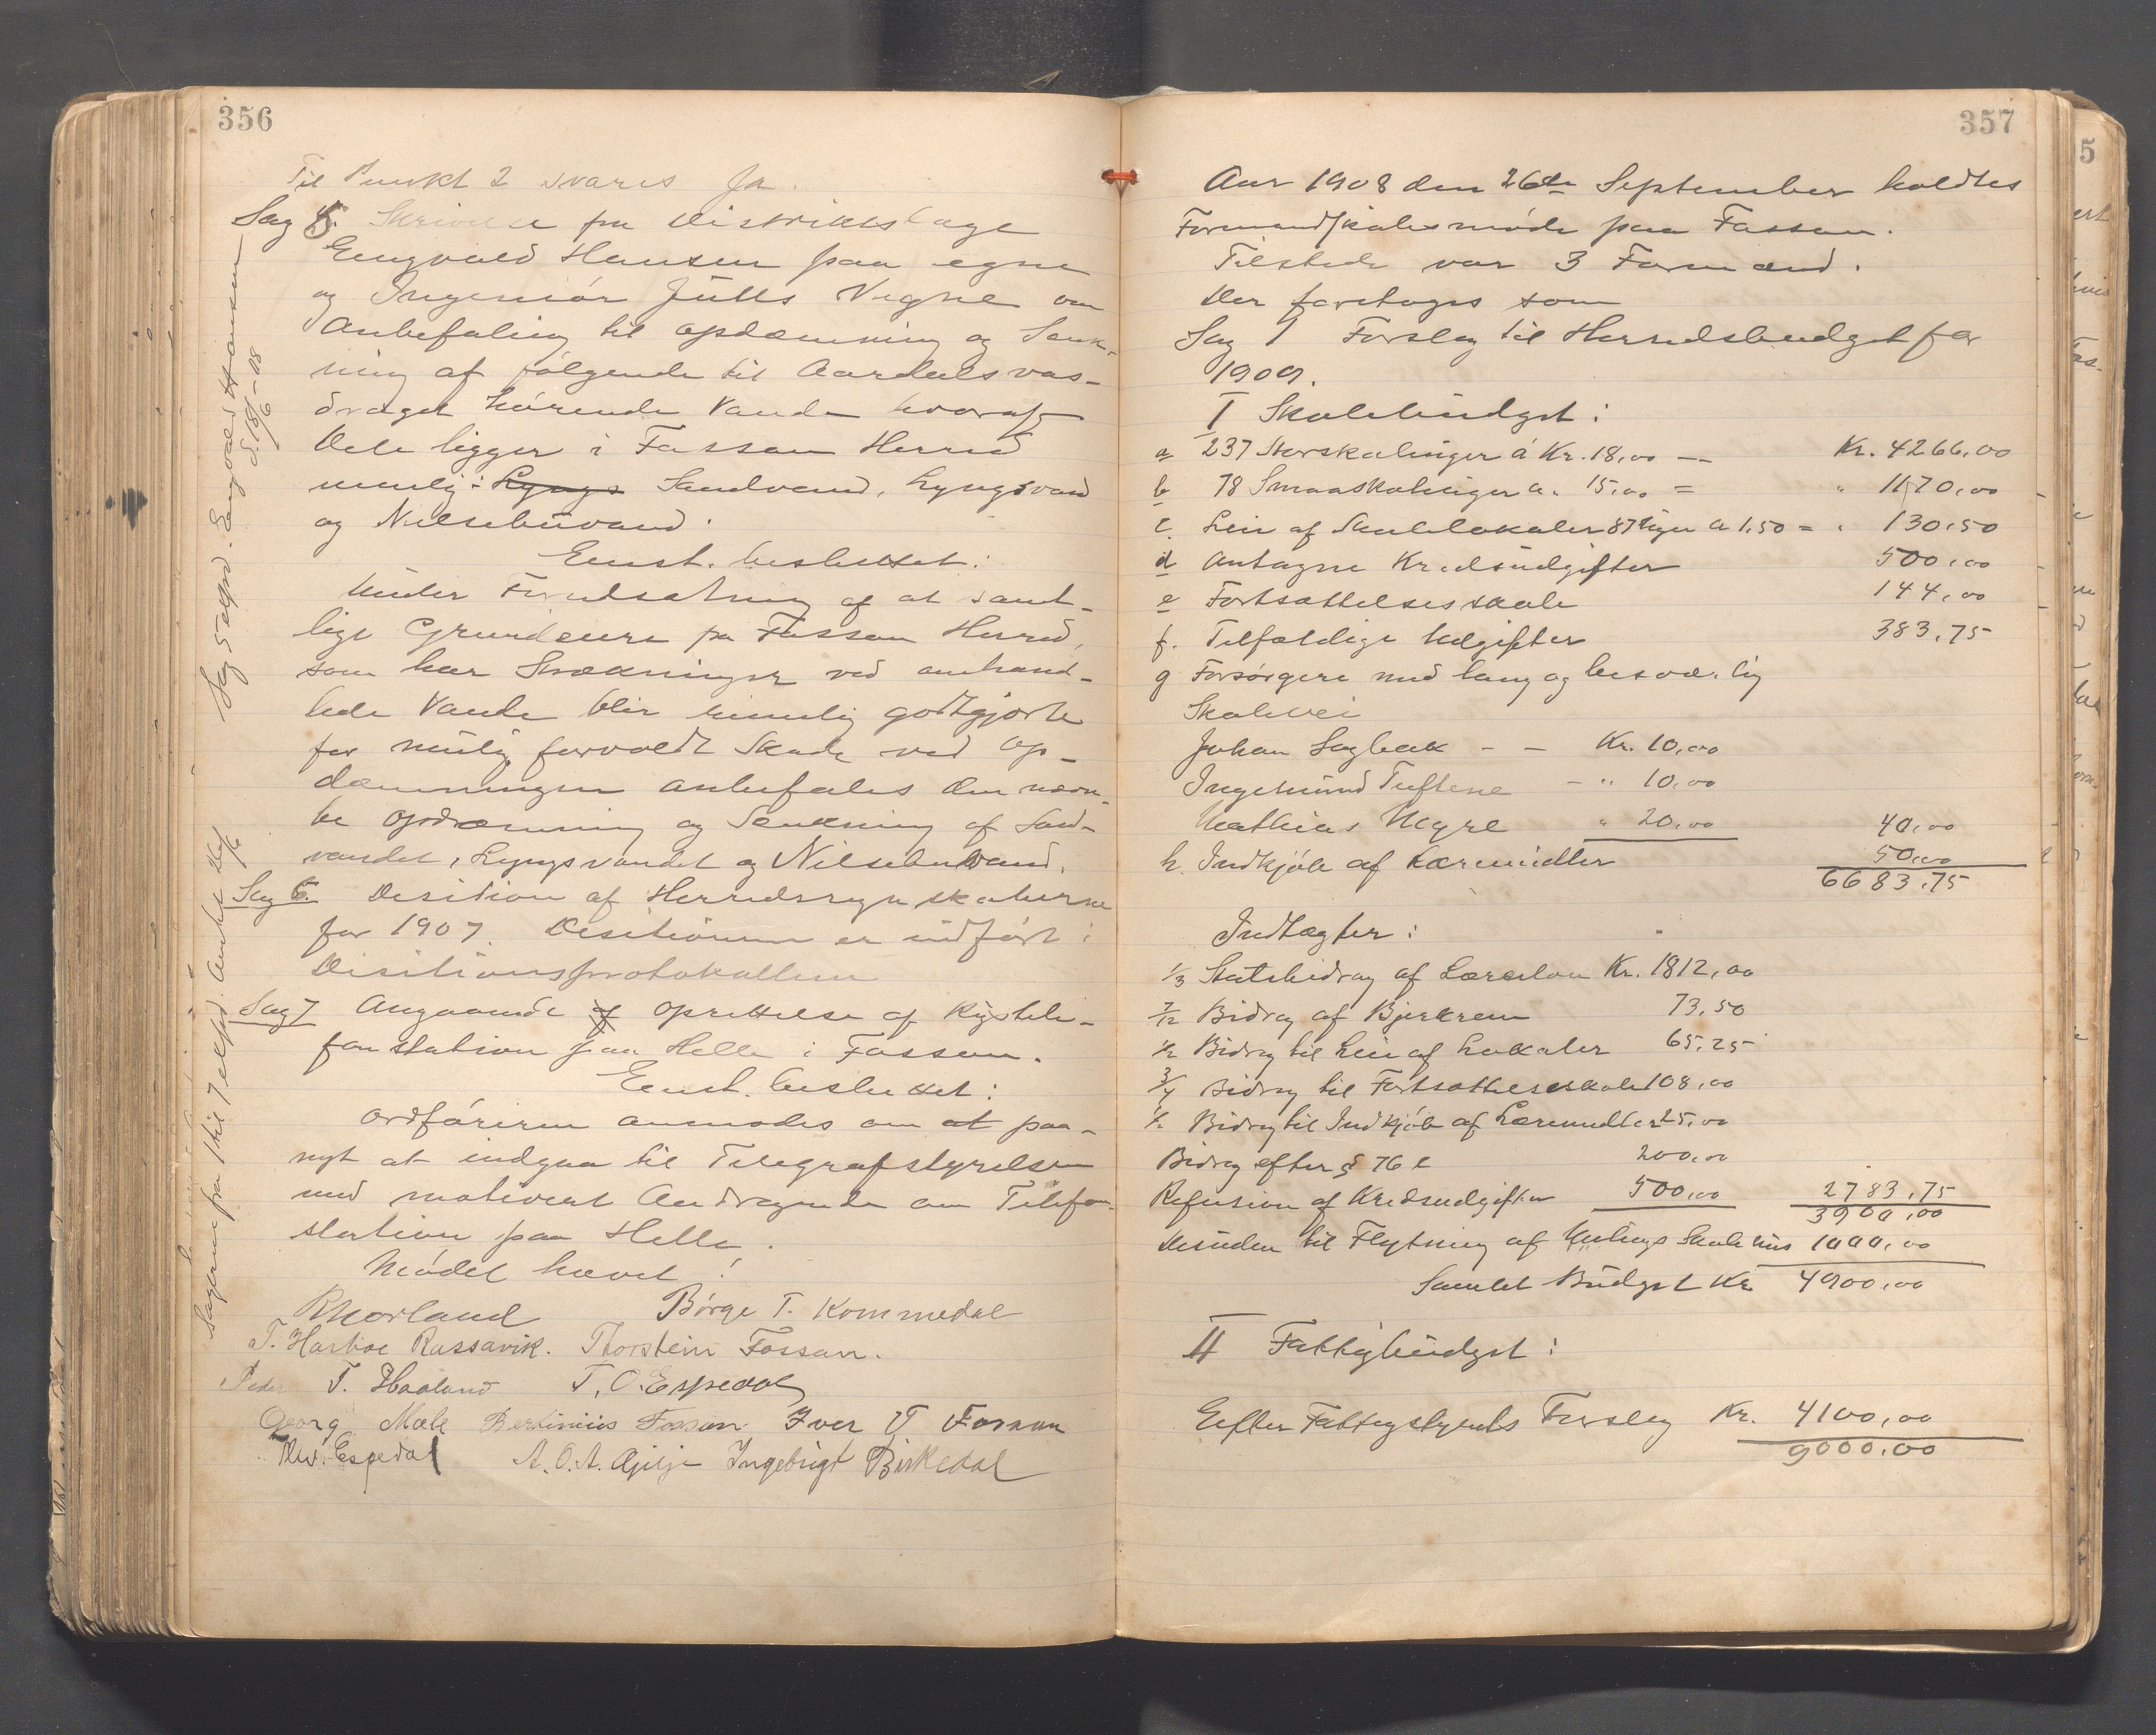 356
Til Punkt 2 svares Ja.
Sag 5. Skrivelse fra Distriktslæge
Engvald Hansen paa egne
og Ingeniør Jülls Vegne om
Anbefaling til Opdæmning og Sænk-
ning af følgende til Aardalsvas-
draget hørende Vande hvoraf
Dele ligger i Fossan Herred
nemlig: Lyngs Sandvand, Lyngsvand
og Nilsebuvand.
Enst. besluttet:
Under Forudsætning af at samt-
lige Grundeiere fra Fossan Herred,
som har Strækninger ved omhand-
lede Vande blir rimelig godtgjorte
for mulig forvoldt Skade ved Op-
dæmningen anbefales den nævn-
te Opdæmning og Sænkning af Sand-
vandet, Lyngsvandet og Nilsebuvand.
Sag 6. Desition af Herredsregnskaberne
for 1907. Desitionen er indført i
Disitionsprotokollen
Sag 7 Angaaende af Oprettelse af Rigstele-
fonstation paa Helle i Fossan.
Enst. besluttet:
Ordføreren anmodes om at paa-
nyt at indgaa til Telegrafstyrelsen
med motivert Andragende om Telefon-
station paa Helle.
Mødet hævet!
R Morland Børge T. Kommedal
T. Harboe Rossavik. Thorstein Fossan.
Peder T. Haaland T. O. Espedal
Georg Mæle Bertinius Fossan Iver T Fossan
Ole Espedal A. O. A. Gjilje Ingebrigt Birkedal
Sag 5 expd. Engvald Hansen
d. 18/6 - 08
Sagerne fra 1 til 7 expd. Amtet
357
Aar 1908 den 26de September holdtes
Formandskabsmøde paa Fossan.
Tilstede var 3 Formænd.
Der foretoges som
Sag 1 Forslag til Herredsbudget for
1909.
I Skolebudget:
a 237 Storskolinger á Kr. 18,00 — Kr. 4266,00
b 78 Smaaskolinger a. 15,00 = " 1170,00
c. Leie af Skolelokaler 87 Uger a 1.50 = " 130,50
d Antagne Kredsudgifter 500,00
e Fortsættelsesskole 144,00
f. Tilfældige Udgifter 383,75
g Forsørgere med lang og besværlig
Skolevei
Johan Sagbak - - Kr. 10,00
Ingemund Tuftene - " 10,00
Mathias Mgre " 20,00 40,00
h. Indkjøb af Læremidler 50,00
6683,75
Indtægter:
1/3 Statsbidrag af Læreløn Kr. 1812,00
7/12 Bidrag af Bjerkreim 73,50
1/2 Bidrag til Leie af Lokaler 65,25
3/4 Bidrag til Fortsættelsesskole 108,00
1/2 Bidrag til Indkjøb af Læremidler 25,00
Bidrag efter § 76 e 200,00
Refusion af Kredsudgifter 500,00 2783,75
3900,00
Desuden til Flytning af Skolehus 1000,00
Samlet Budget Kr 4900,00
II Fattigbudget:
Efter Fattigstyrets Forslag Kr. 4100,00
9000,00